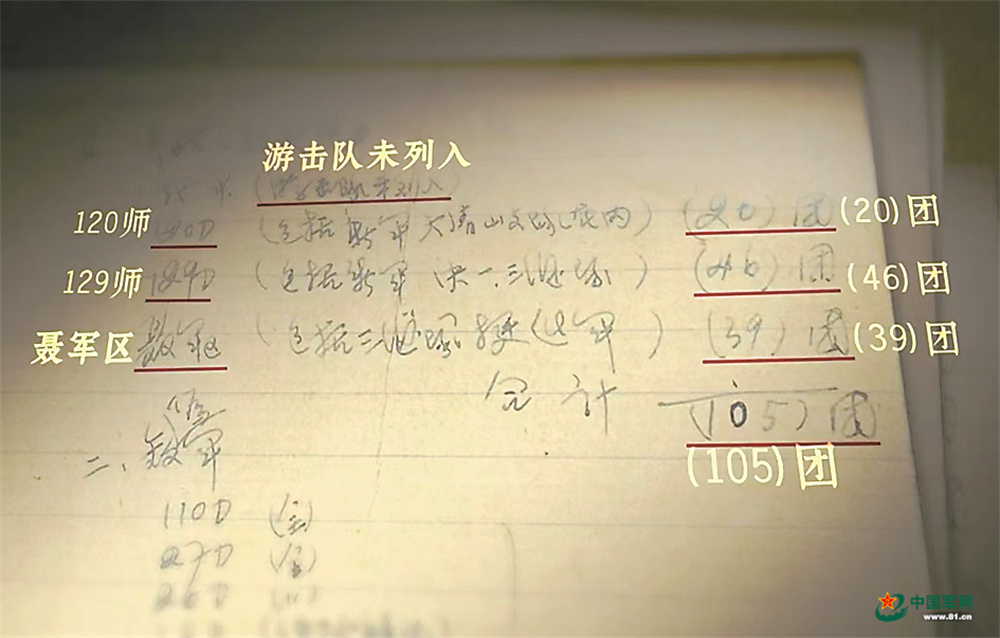 游击队未列入
(游击队未列入)
120师 120D (包括新军大青山支队在内) (20)团 (20)团
129师 129D (包括新军决一、三纵队) (46)团 (46)团
聂军区 聂军区 (包括三纵队 (39)团 (39)团
合计 (105)团
(105)团
二、敌军
110D
27D
26D
中国军网
www.81.cn